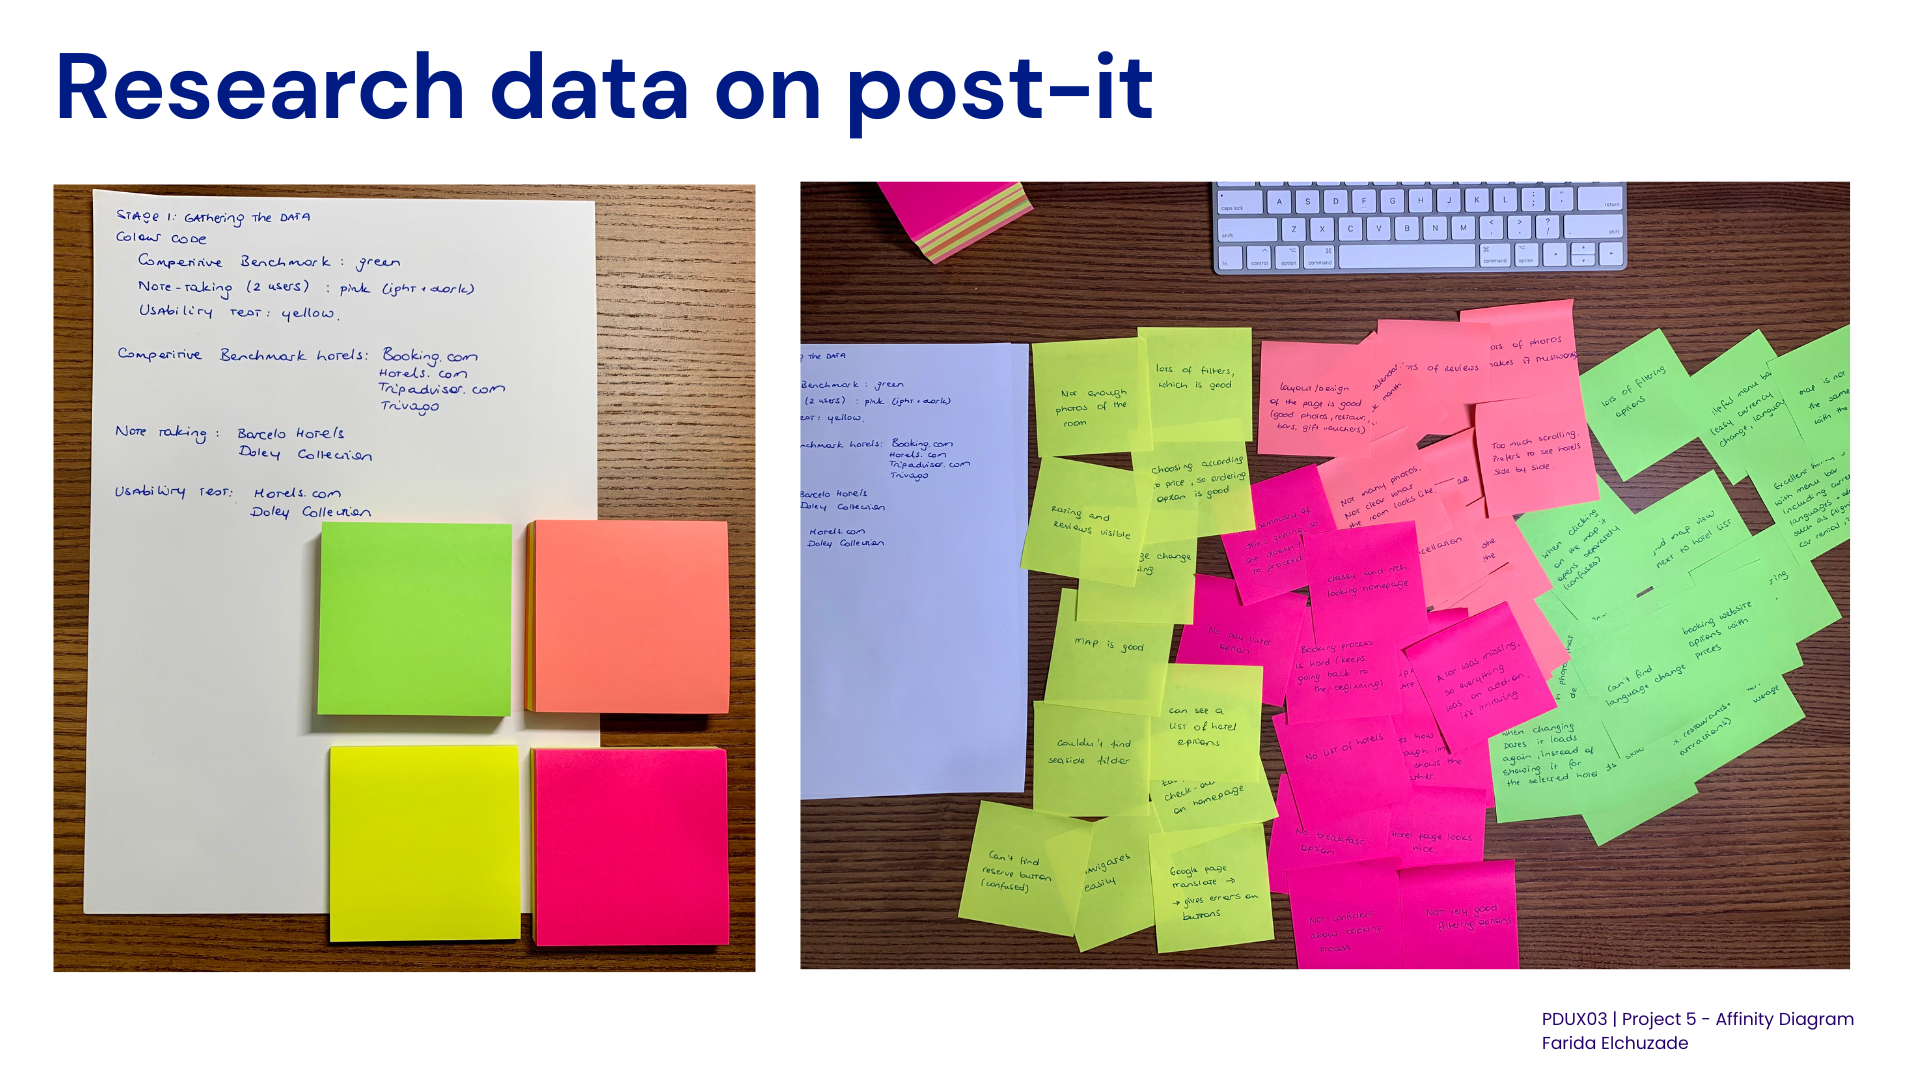 Research data on post-it
STAGE 1: GAthering The DATA
Colour CODE
Competitive Benchmark : green
Note-Taking (2 users) : pink (light + dark)
USAbility TEST: yellow.
Competitive Benchmark hotels: Booking.com
Hotels.com
Tripadvisor.com
Trivago
Note Taking : Barcelo Hotels
Doley Collection
USAbility TEST: Hotels.com
Doley Collection
caps lock
A S D F G H J K L
return
shift
Z X C V B N M
shift
fn control option command
command option
THE DATA
Benchmark : green
(2 users) : pink (light + dark)
: yellow.
hotels: Booking.com
Hotels.com
Tripadvisor.com
Trivago
Barcelo Hotels
Doley Collection
Hotels.com
Doley Collection
Not enough
photos of the
room
lots of filters,
which is good
Rating and
Reviews visible
choosing according
to price, so ordering
option is good
change
MAP is good
couldn't find
seaside filder
can see a
LIST of hotel
options
check-out
on homepage
Can't find
reserve button
(confused)
easily
Google page
translate →
→ gives errors on
buttons
layout/design
of the page is good
(good photos, restaur.,
bars, gift vouchers)
calendar
month
of reviews
of photos
makes it
Too much scrolling.
Prefers to see hotels
side by side.
Not many photos.
Not clear what
the room looks like.
she
the
summary of
classy and rich
looking homepage
No pay later
option
Booking process
is hard (keeps
going back to
the beginning)
A lot was missing,
so everything
was an add-on,
it's missing
No list of hotels
how
shows the
No breakfast
option
Hotel page looks
nice.
Not confident
about booking
process
Not very good
filtering options
lots of filtering
options
menu bar
(easy currency
change, language
map is not
the same
with the
Excellent
with menu bar
including
languages
such as
car rental,
when clicking
on the map it
opens separately
(confused)
map view
next to hotel list
booking website
options with
prices
Can't find
language change
when changing
Dates it loads
again, instead of
showing it for
the selected hotel
restaurants,
attractions)
PDUX03 | Project 5 - Affinity Diagram
Farida Elchuzade